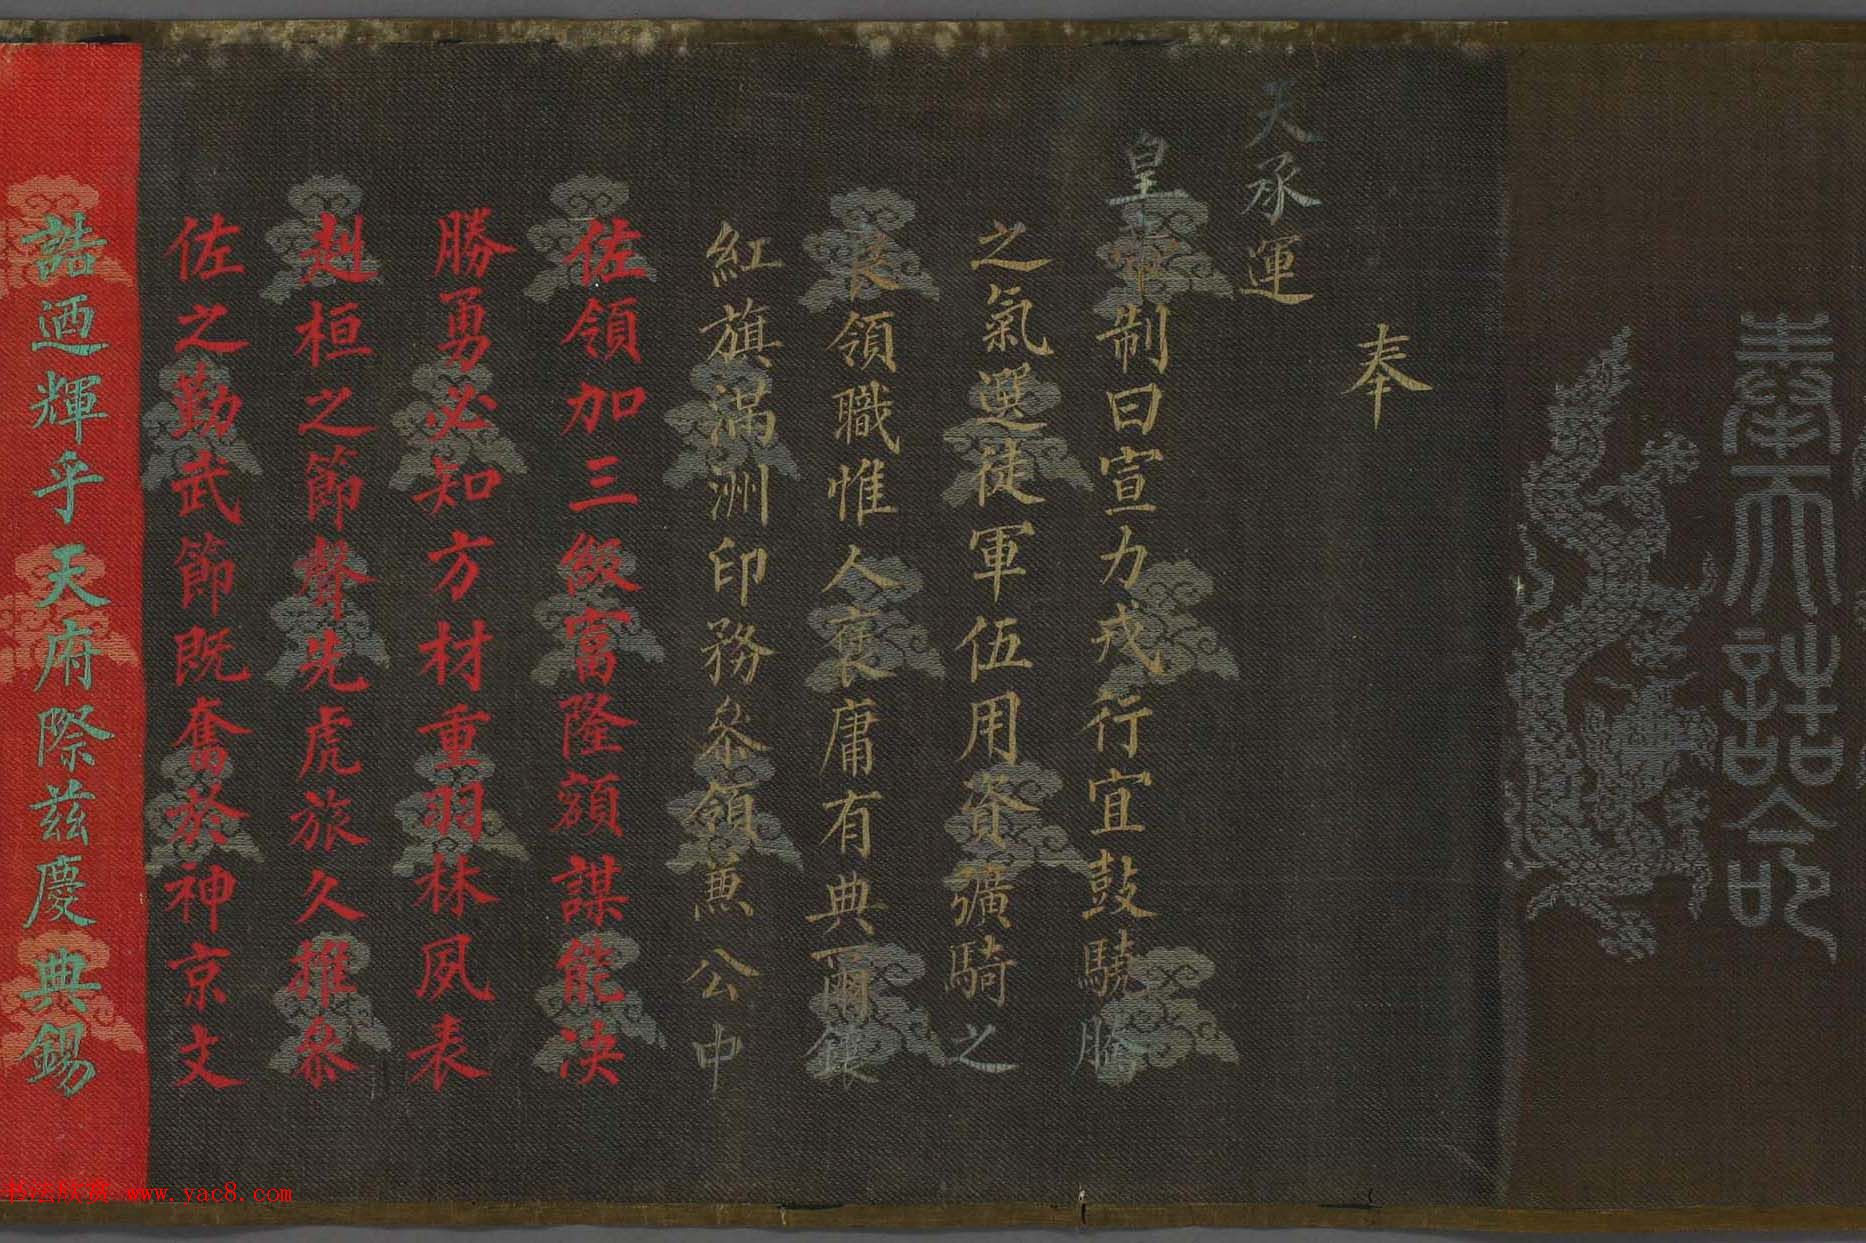 奉天誥命
奉
天承運
皇帝制曰宣力戎行宜鼓驍騰
之氣選徒軍伍用資彍騎之
長領職惟人褒庸有典爾鑲
紅旗滿洲印務參領兼公中
佐領加三級富隆額謀能決
勝勇必知方材重羽林夙表
赳桓之節聲先虎旅久推參
佐之勤武節既奮於神京文
誥迺輝乎天府際茲慶典錫
书法欣赏 www.yac8.com